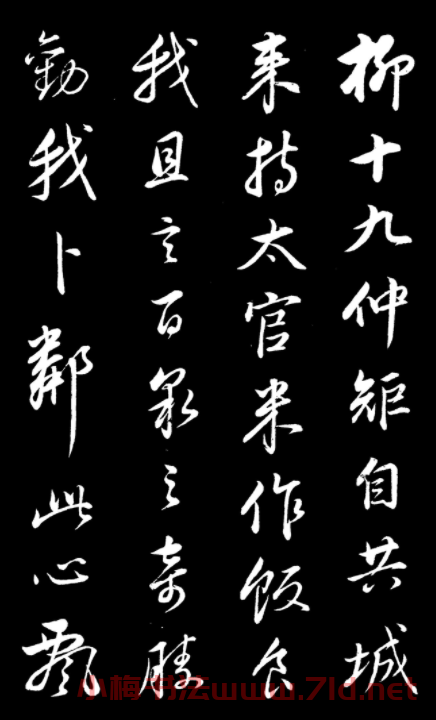 柳十九仲矩自共城
来持太官米作飯食
我且言百泉之奇勝
勸我卜鄰此心飄
小梅书法www.7ld.net